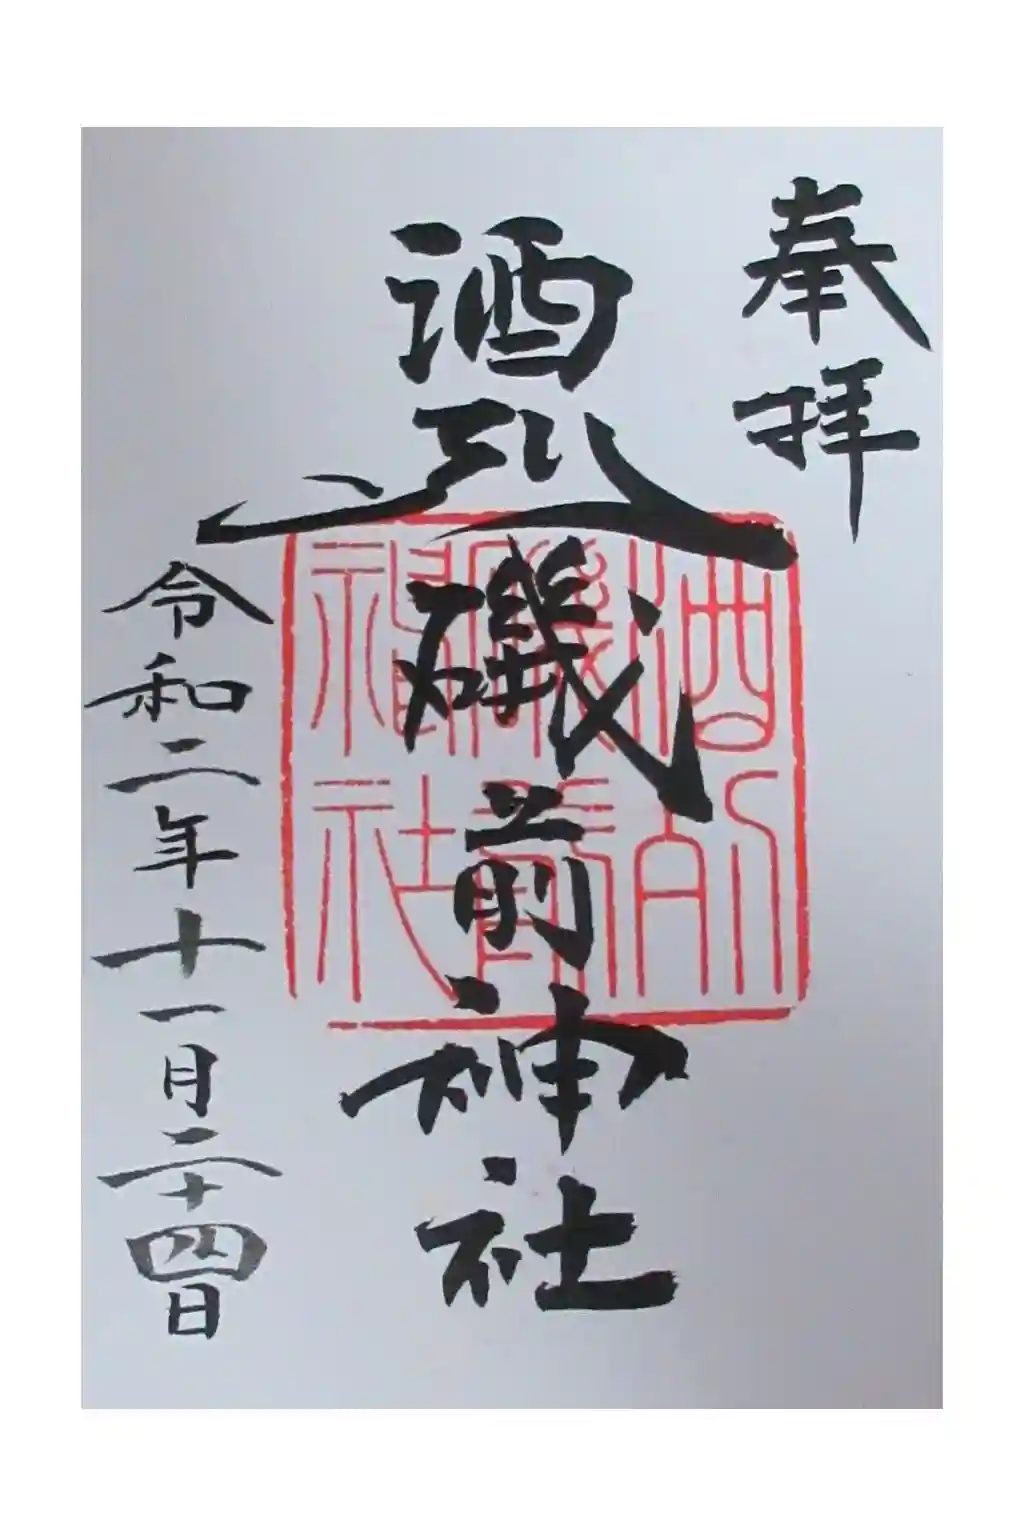 奉拝
酒列磯前神社
令和二年十一月二十四日
酒列
磯前
神社